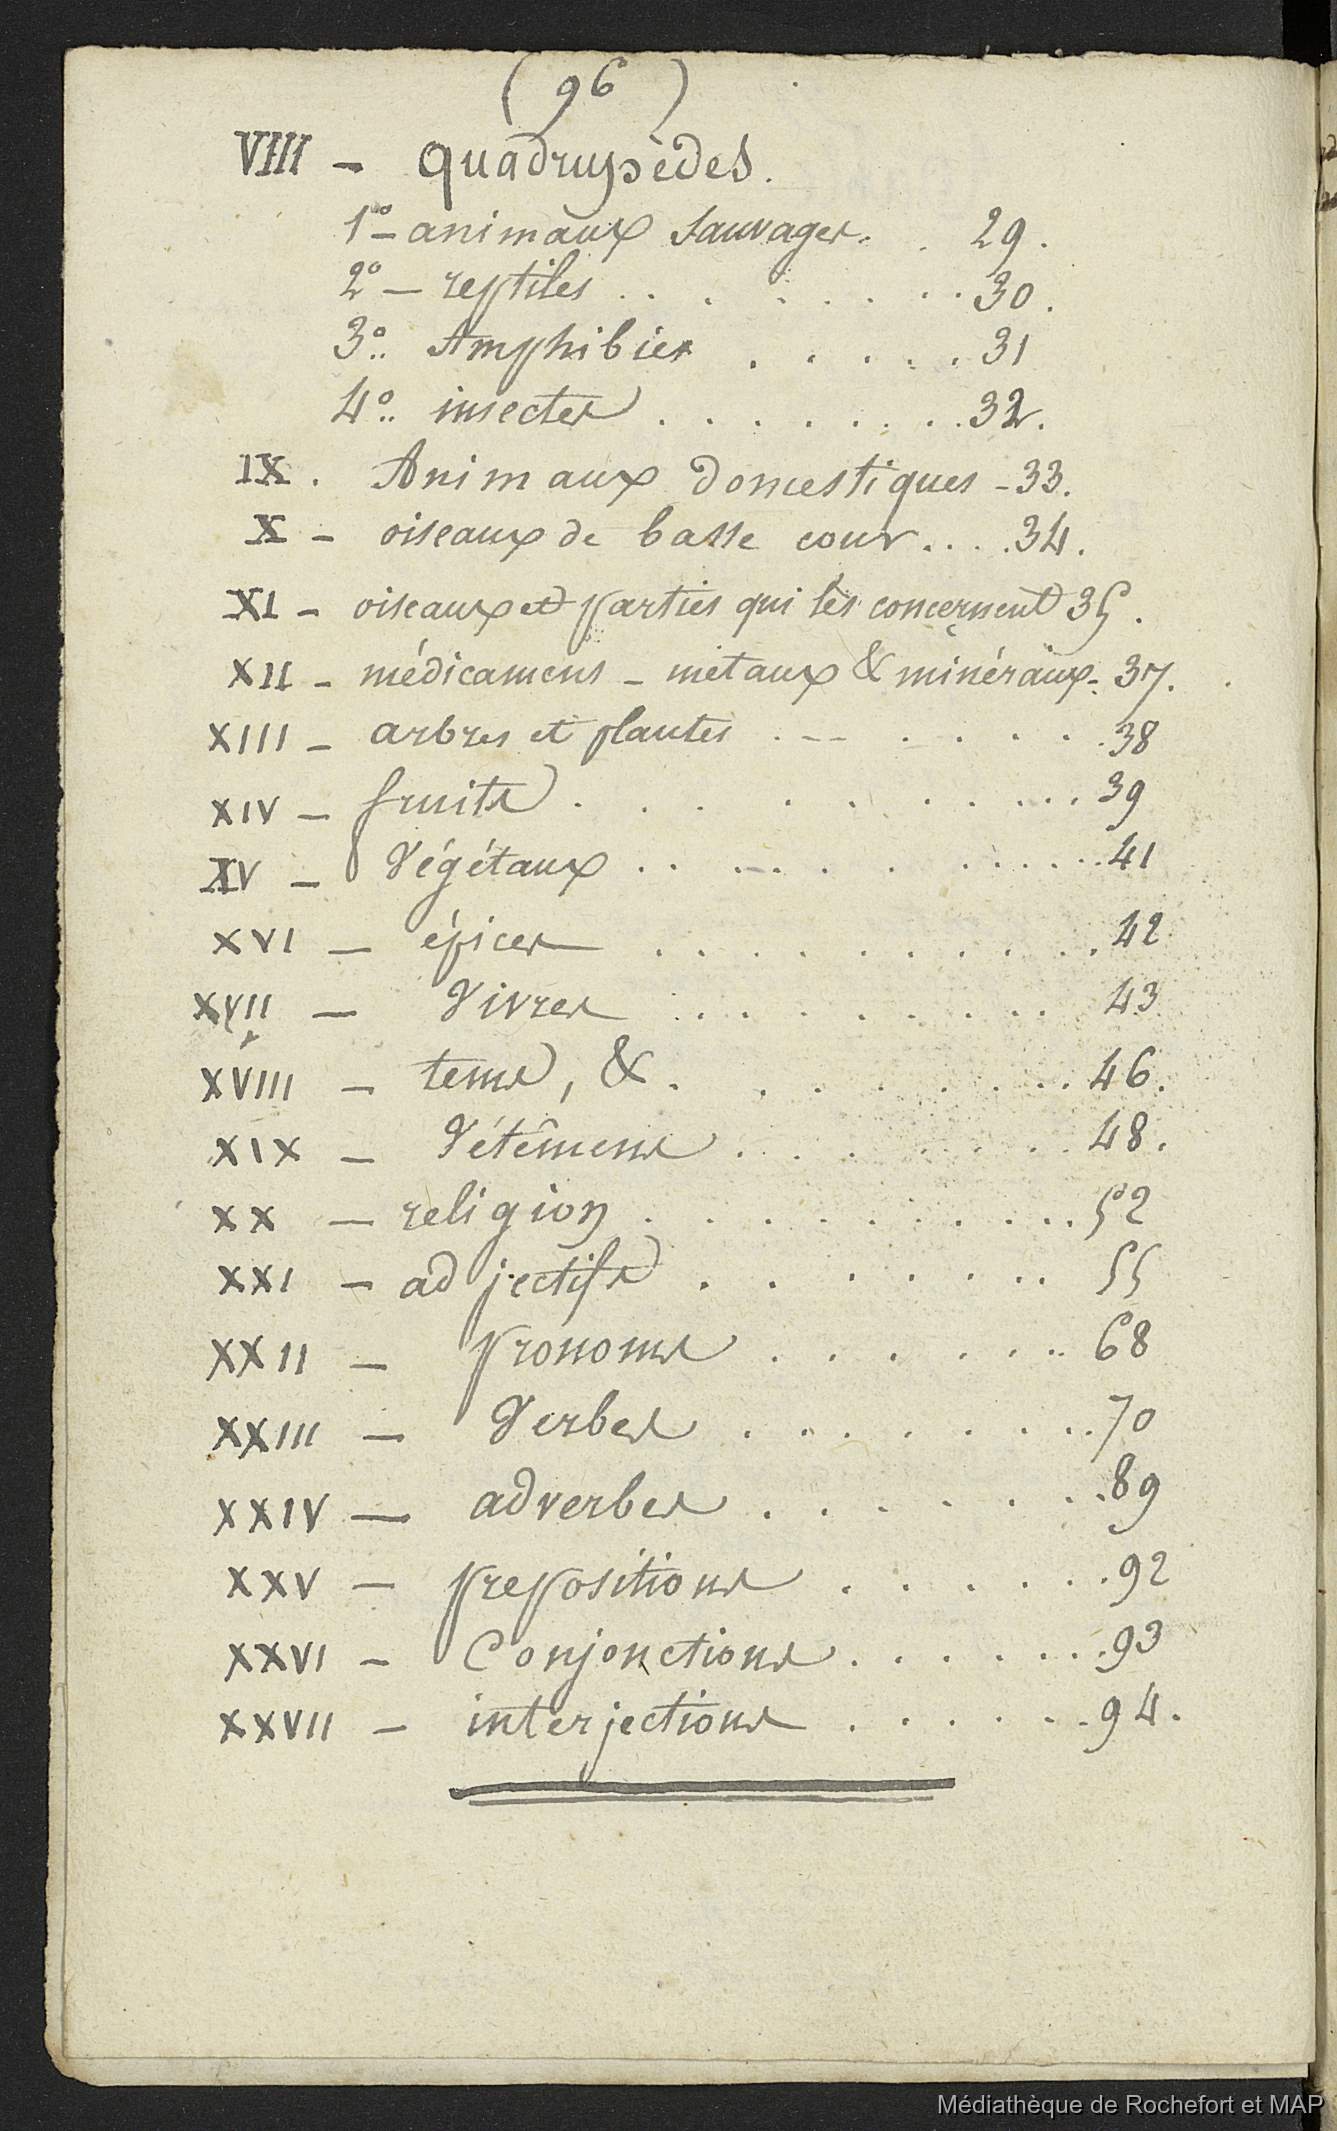 ( 96 )
VIII - quadrupèdes.
1° - animaux sauvages. . 29.
2° - reptiles . . . . . . . . 30.
3°.. Amphibies . . . . . 31
4°.. insectes . . . . . . . . 32.
IX. Animaux domestiques - 33.
X - oiseaux de basse cour . . . . 34.
XI - oiseaux et parties qui les concernent 35.
XII - médicamens - métaux & minéraux - 37.
XIII - arbres et plantes . - - . . . . . 38
XIV - fruits . . . . . . . . . . . 39
XV - Végétaux . . . . . . . . . . . 41
XVI - épices . . . . . . . . . . 42
XVII - Vivres . . . . . . . . . 43
XVIII - tems, &. . . . . . . . 46.
XIX - Vêtêmens . . . . . . . 48.
XX - religion . . . . . . . . . . 52
XXI - adjectifs . . . . . . . 55
XXII - pronoms . . . . . . . 68
XXIII - Verbes . . . . . . . . 70
XXIV - adverbes . . . . . . . 89
XXV - prepositions . . . . . . 92
XXVI - Conjonctions . . . . . . . 93
XXVII - interjections . . . . . . 94.
Médiathèque de Rochefort et MAP